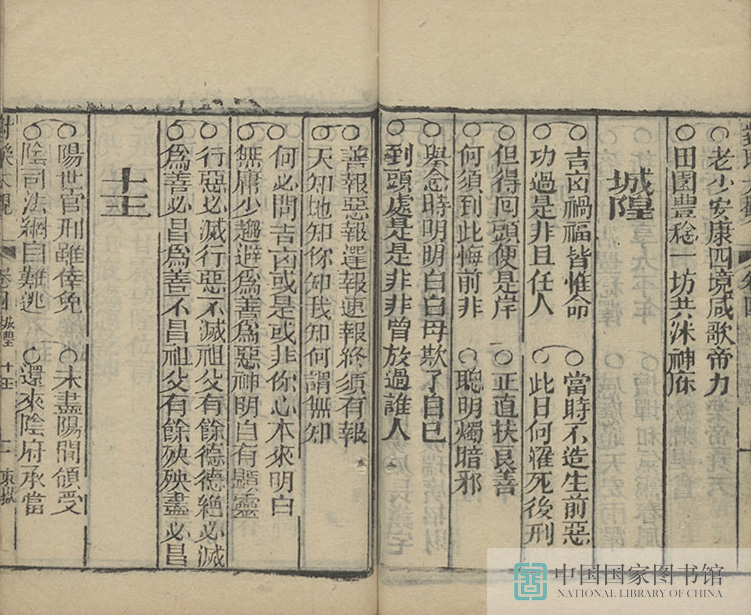 老少安康四境咸歌帝力
田園豐稔一坊共沐神庥
城隍
吉凶禍福皆惟命
功過是非且任人
當時不造生前惡
此日何濯死後刑
但得回頭便是岸
何須到此悔前非
正直扶良善
聰明燭暗邪
舉念時明明白白毋欺了自己
到頭處是是非非曾放過誰人
善報惡報遲報速報終須有報
天知地知你知我知何謂無知
何必問吉凶或是或非你心本來明白
無庸少趨避為善為惡神明自有顯靈
行惡必滅行惡不滅祖父有餘德德絕必滅
為善必昌為善不昌祖父有餘殃殃盡必昌
十王
陽世官刑雖倖免
陰司法網自難逃
未盡陽間領受
還來陰府承當
對樂大觀 卷四 城隍 十王
中国国家图书馆
NATIONAL LIBRARY OF CHINA